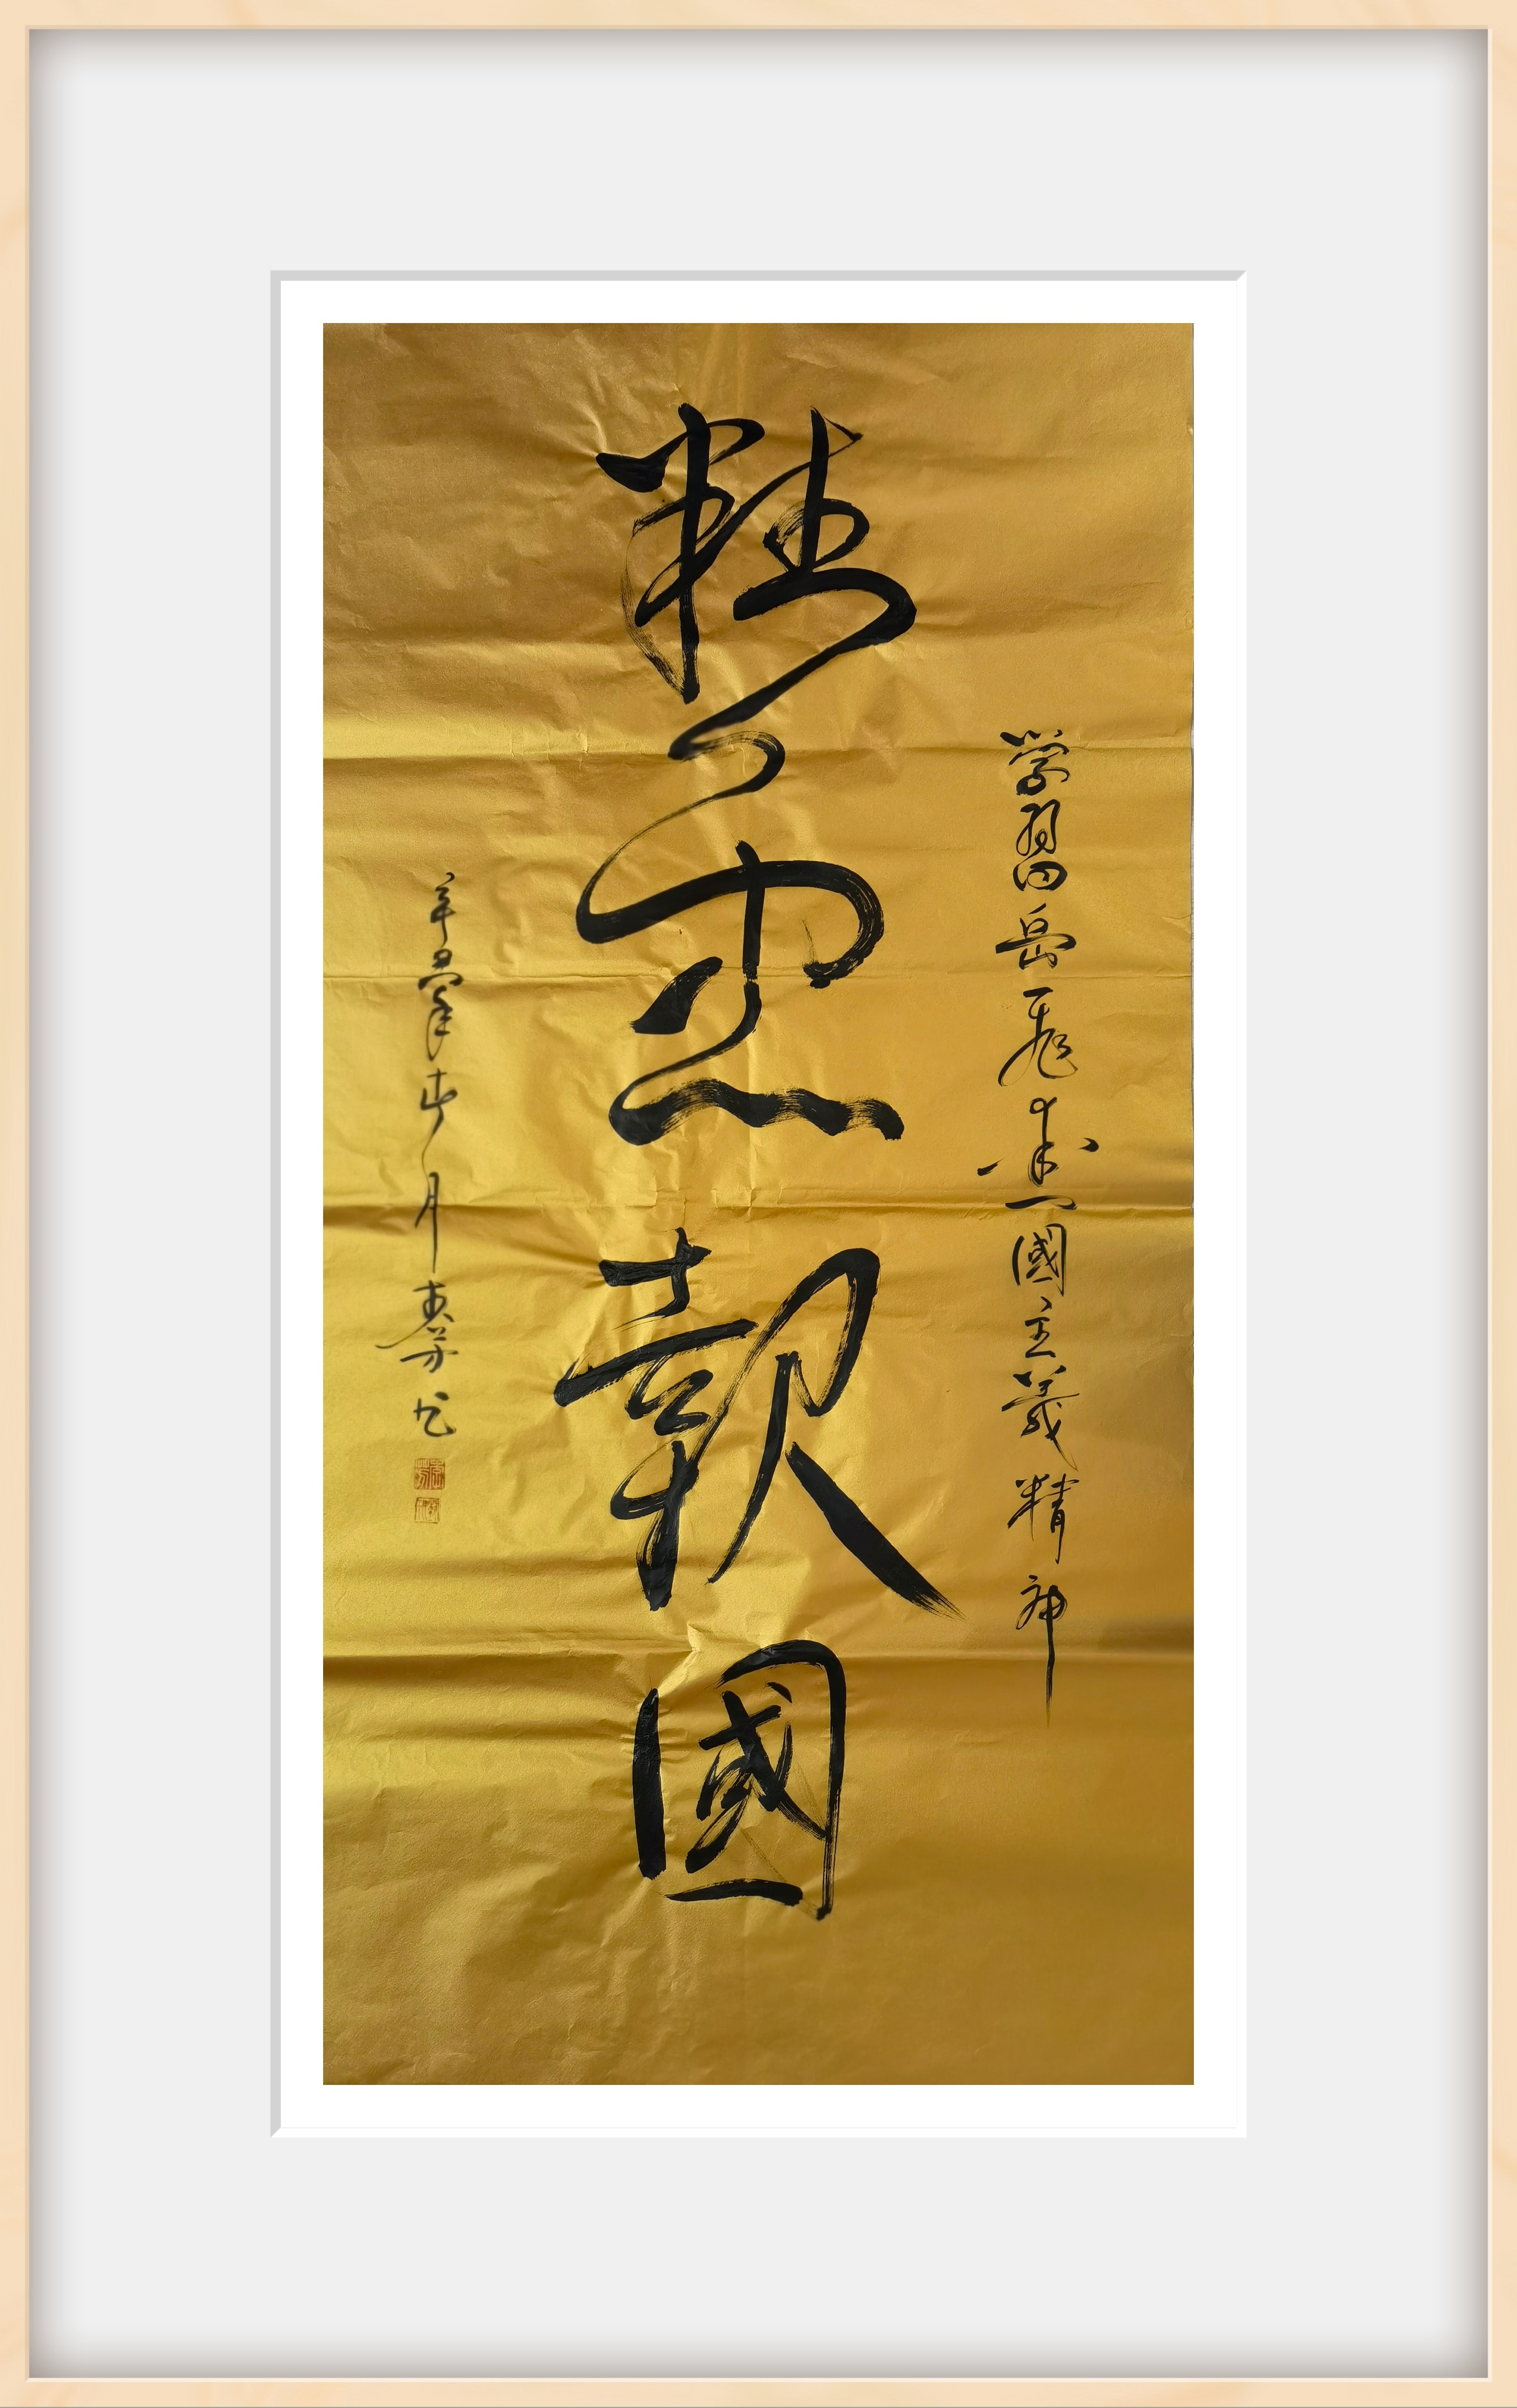 學習岳飛愛國主義精神
精忠報國
辛丑肇春月 芳書